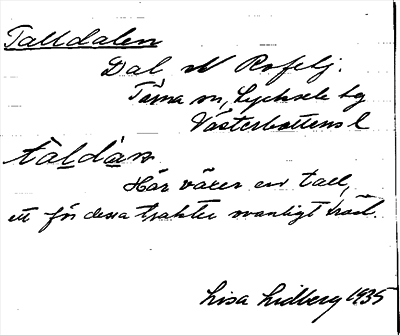 Talldalen
Dal N Rofelj.
Tärna sn, Lycksele lg
Västerbottens l
táldàn
Här växer en tall,
ett för dessa trakter ovanligt träd.
Lisa Lidberg 1935